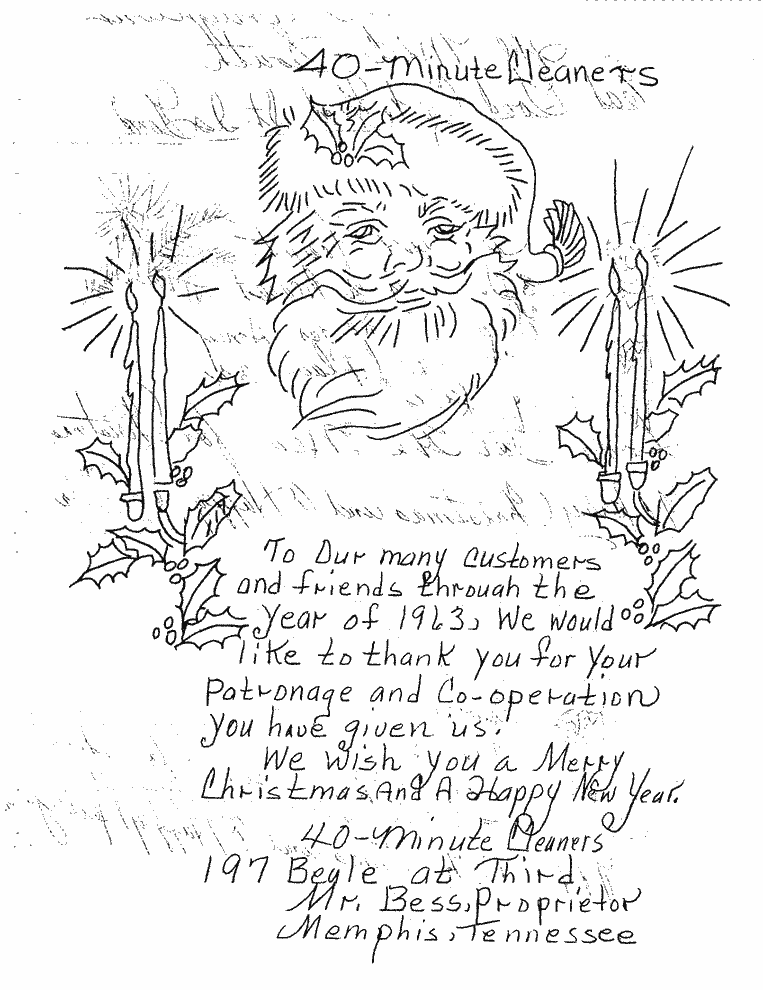 40-Minute Cleaners
To Our many customers
and friends through the
year of 1963, We would
like to thank you for your
Patronage and Co-operation
you have given us.
We wish you a Merry
Christmas, And A Happy New Year.
40-Minute Cleaners
197 Beale at Third
Mr. Bess, Proprietor
Memphis, Tennessee